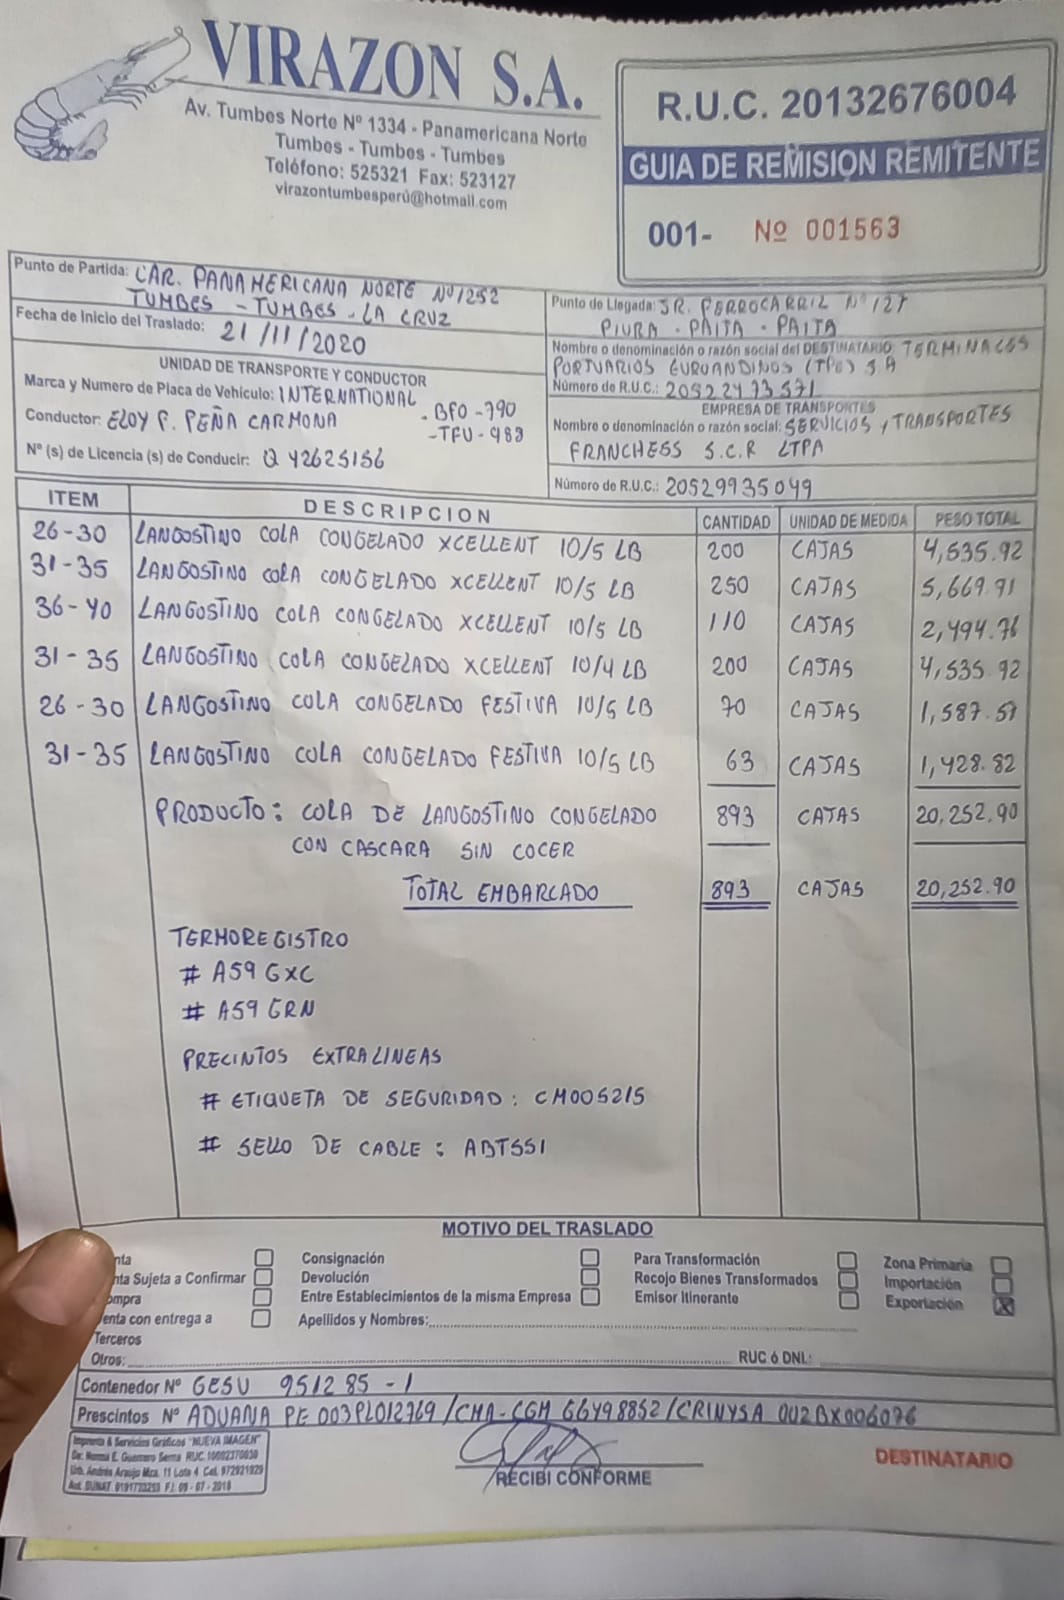 VIRAZON S.A.
Av. Tumbes Norte Nº 1334 - Panamericana Norte
Tumbes - Tumbes - Tumbes
Teléfono: 525321 Fax: 523127
virazontumbesperú@hotmail.com
R.U.C. 20132676004
GUIA DE REMISION REMITENTE
001- Nº 001563
Punto de Partida: CAR. PANAMERICANA NORTE Nº 1252
TUMBES - TUMBES - LA CRUZ
Fecha de Inicio del Traslado: 21/11/2020
Punto de Llegada: JR. FERROCARRIL Nº 127
PIURA - PAITA - PAITA
Nombre o denominación o razón social del DESTINATARIO: TERMINALES
PORTUARIOS EUROANDINOS (TPE) S.A
Número de R.U.C.: 20522473571
UNIDAD DE TRANSPORTE Y CONDUCTOR
Marca y Numero de Placa de Vehículo: INTERNATIONAL - BFO-790
Conductor: ELOY F. PEÑA CARMONA - TFU-983
Nº (s) de Licencia (s) de Conducir: Q 42625156
EMPRESA DE TRANSPORTES
Nombre o denominación o razón social: SERVICIOS Y TRANSPORTES
FRANCHESS S.C.R LTDA
Número de R.U.C.: 20529935049
ITEM DESCRIPCION CANTIDAD UNIDAD DE MEDIDA PESO TOTAL
26-30 LANGOSTINO COLA CONGELADO XCELLENT 10/5 LB 200 CAJAS 4,535.92
31-35 LANGOSTINO COLA CONGELADO XCELLENT 10/5 LB 250 CAJAS 5,669.91
36-40 LANGOSTINO COLA CONGELADO XCELLENT 10/5 LB 110 CAJAS 2,494.76
31-35 LANGOSTINO COLA CONGELADO XCELLENT 10/4 LB 200 CAJAS 4,535.92
26-30 LANGOSTINO COLA CONGELADO FESTIVA 10/5 LB 70 CAJAS 1,587.57
31-35 LANGOSTINO COLA CONGELADO FESTIVA 10/5 LB 63 CAJAS 1,428.82
PRODUCTO: COLA DE LANGOSTINO CONGELADO 893 CAJAS 20,252.90
CON CASCARA SIN COCER
TOTAL EMBARCADO 893 CAJAS 20,252.90
TERMOREGISTRO
# A59GXC
# A59GRN
PRECINTOS EXTRALINEAS
# ETIQUETA DE SEGURIDAD: CM005215
# SELLO DE CABLE: ABT551
MOTIVO DEL TRASLADO
nta Consignación Para Transformación Zona Primaria
nta Sujeta a Confirmar Devolución Recojo Bienes Transformados Importación
ompra Entre Establecimientos de la misma Empresa Emisor Itinerante Exportación X
enta con entrega a Apellidos y Nombres:
Terceros
Otros: RUC ó DNI.:
Contenedor Nº GESU 951285-1
Prescintos Nº ADUANA PE 003PL012769/CMA-CGM G6498852/CRINYSA 002BX006076
Imprenta & Servicios Gráficos "NUEVA IMAGEN"
De: Norma E. Guerrero Serna RUC. 10002370030
Urb. Andrés Araujo Mza. 11 Lote 4 Cel. 972921929
Aut. SUNAT. 0191733253 F.I. 09 - 07 - 2018
RECIBI CONFORME
DESTINATARIO